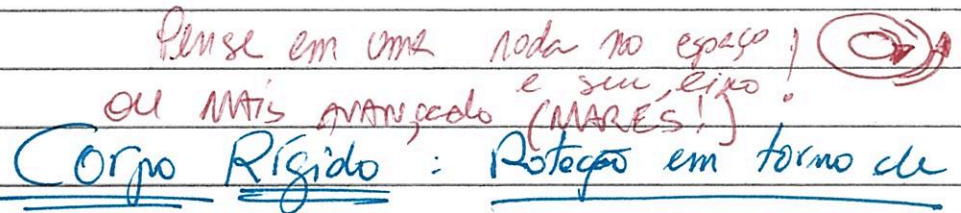 Pense em uma roda no espaço!
e seu eixo!
ou MAIS AVANÇADO (MARÉS!)
Corpo Rígido : Rotação em torno de